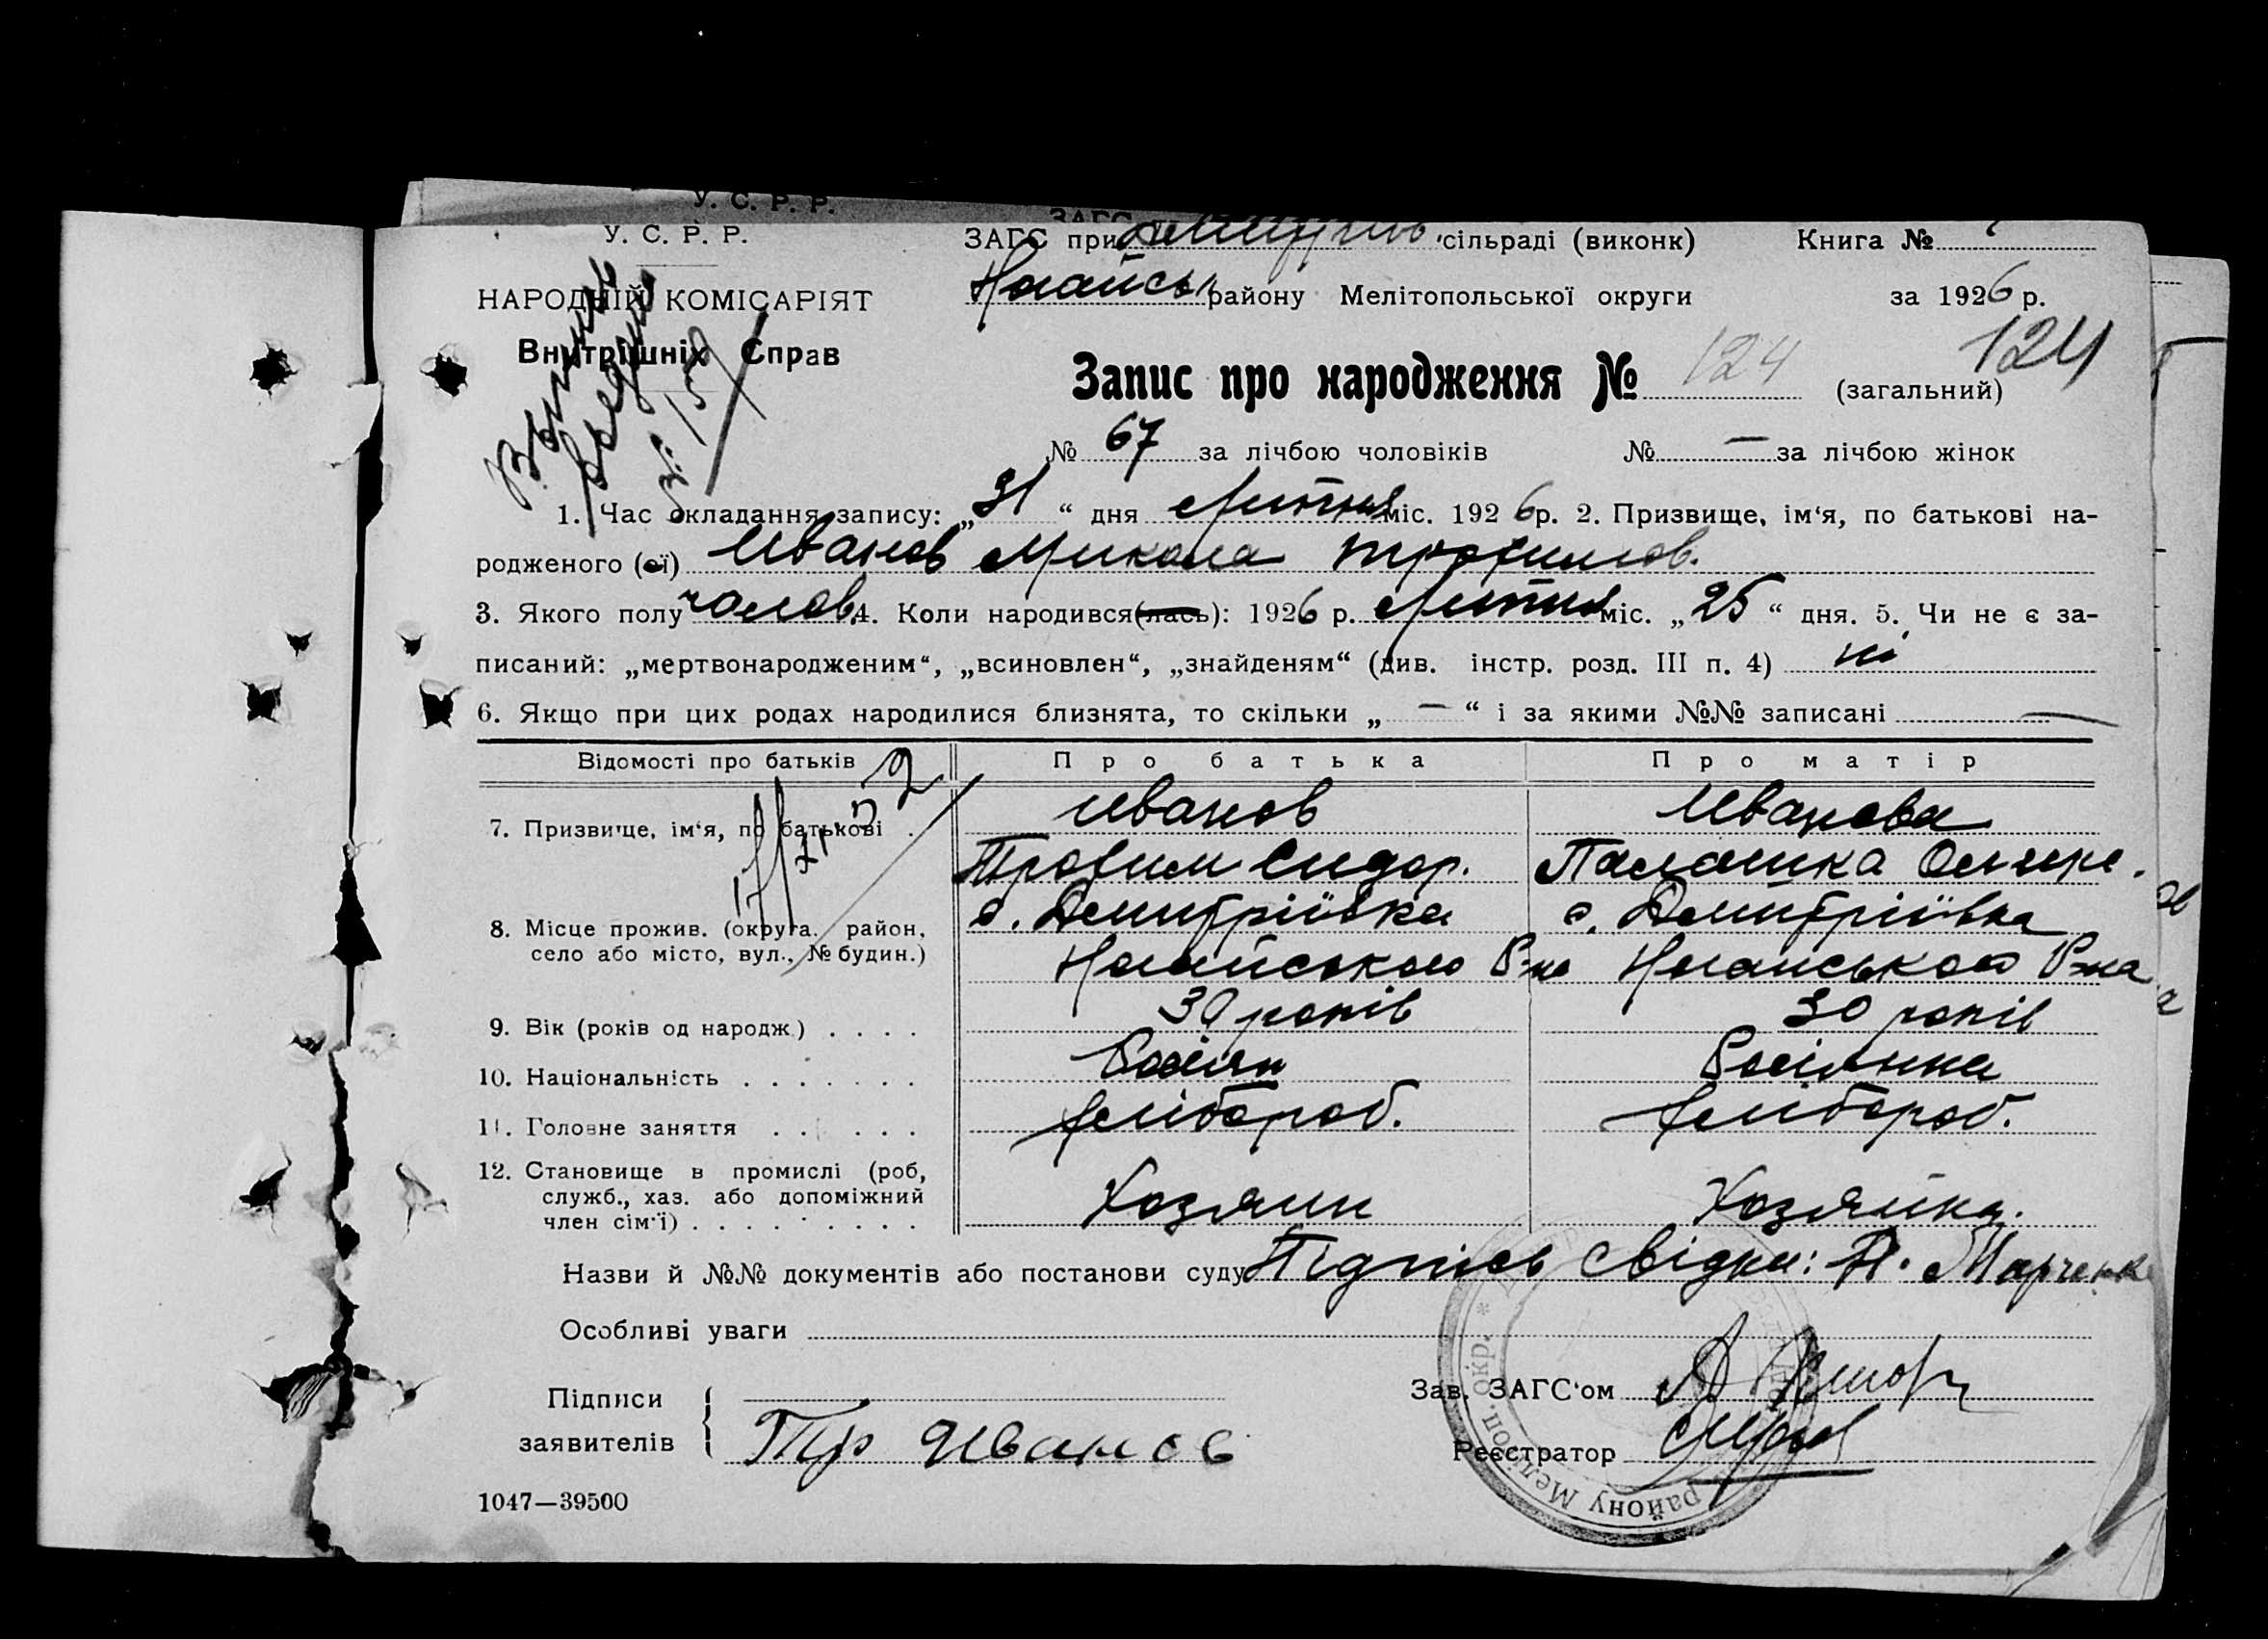 У. С. Р. Р.
У. С. Р. Р.
НАРОДНІЙ КОМІСАРІЯТ
Внутрішніх Справ
ЗАГС при сільраді (виконк) Книга №
Ногайськ району Мелітопольської округи за 1926 р.
Запис про народження № 124 (загальний) 124
№ 67 за лічбою чоловіків № — за лічбою жінок
1. Час складання запису: „31“ дня Липня міс. 1926 р. 2. Призвище, ім‘я, по батькові на-
родженого (ої) Иванов Микола Трофимов.
3. Якого полу чолов. 4. Коли народився(лась): 1926 р. Липня міс. „25“ дня. 5. Чи не є за-
писаний: „мертвонародженим“, „всиновлен“, „знайденям“ (див. інстр. розд. III п. 4) ні
6. Якщо при цих родах народилися близнята, то скільки „ — “ і за якими №№ записані —
Відомості про батьків Про батька Про матір
7. Призвище, ім‘я, по батькові . Иванов Иванова
Трофим Сидор. Палашка
8. Місце прожив. (округа. район, с. Дмитріївка с. Дмитріївка
село або місто, вул., № будин.) Ногайського Р-на Ногайського Р-на
9. Вік (років од народж.) . . . . 30 років 30 років
10. Національність . . . . . . . Росіян Росіянка
11. Головне заняття . . . . . . хлібороб. хлібороб.
12. Становище в промислі (роб,
служб., хаз. або допоміжний
член сім‘ї) . . . . . . . . . Хозяин Хозяйка.
Назви й №№ документів або постанови суду Підпісь свідки: Марченк
Особливі уваги
Підписи
заявителів
Тр Иванов
Зав. ЗАГС‘ом
Реєстратор
району Меліто п. окр.
1047—39500